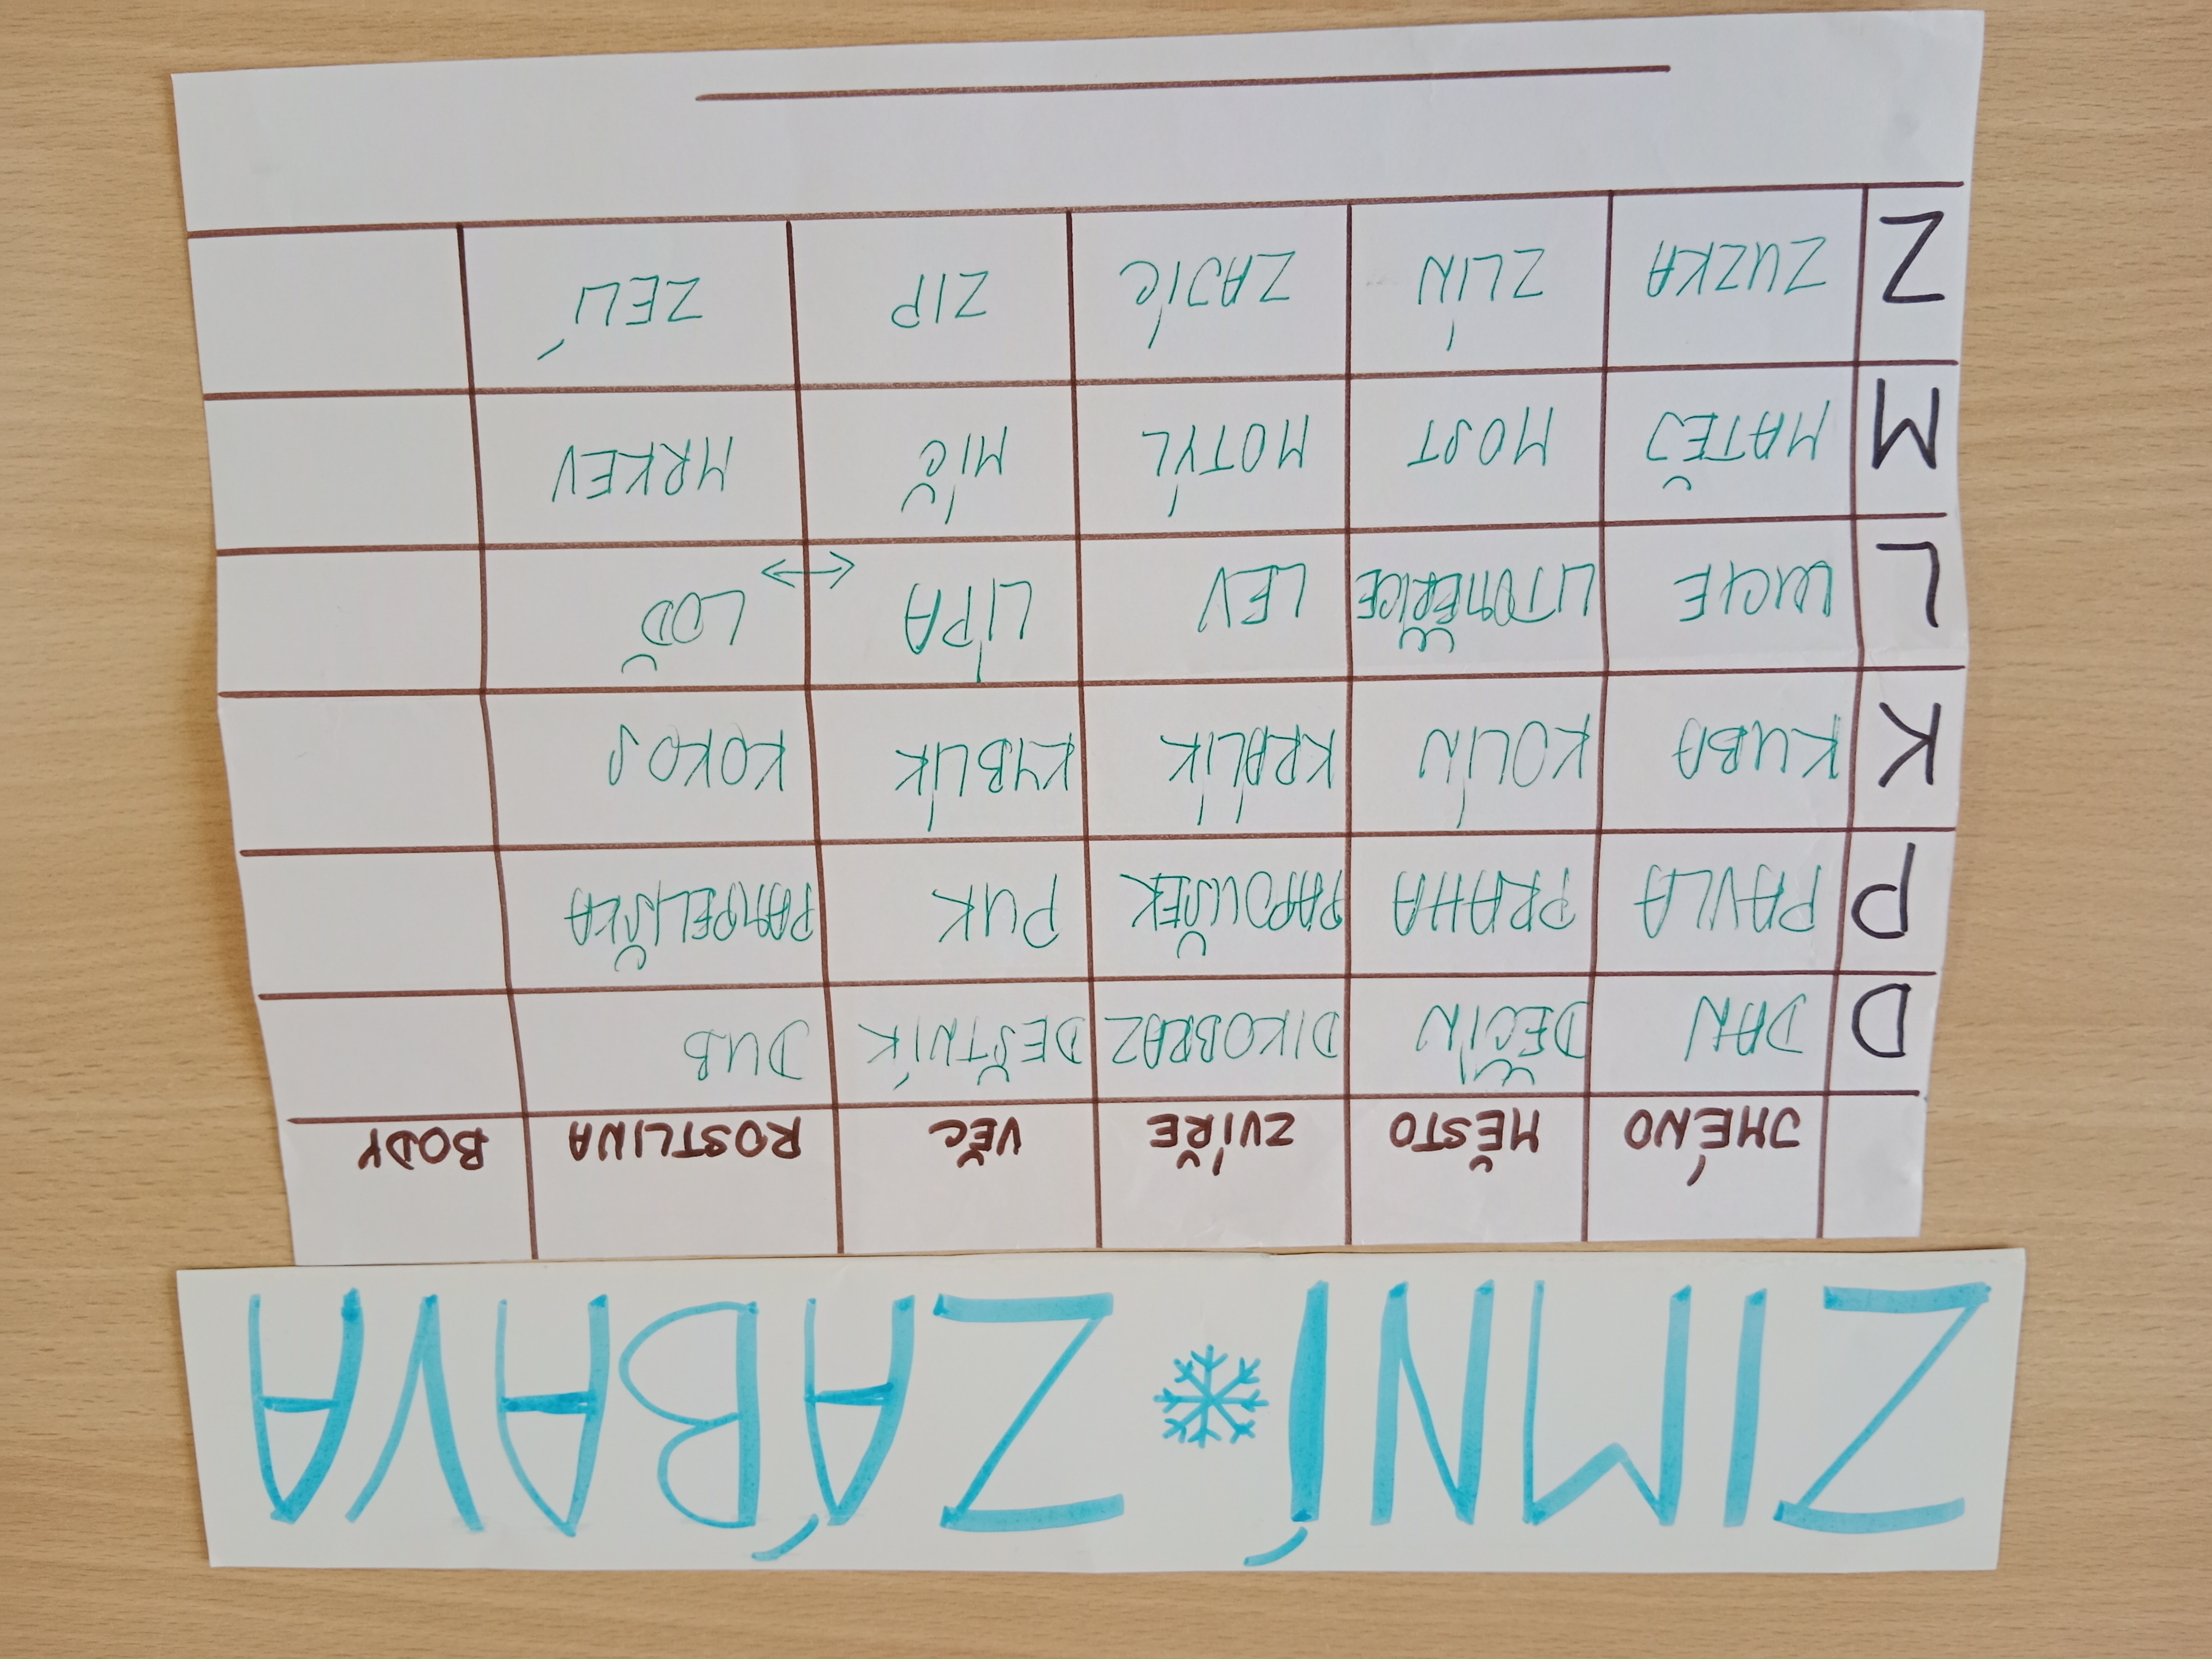 ZIMNÍ ZÁBAVA
JMÉNO MĚSTO ZVÍŘE VĚC ROSTLINA BODY
D DAN DĚČÍN DIKOBRAZ DEŠTNÍK DUB
P PAVLA PRAHA PAPOUŠEK PUK PAMPELIŠKA
K KUBA KOLÍN KRÁLÍK KYBLÍK KOKOS
L LUCIE LITOMĚŘICE LEV LÍPA ↔ LOĎ
M MATĚJ MOST MOTÝL MÍČ MRKEV
Z ZUZKA ZLÍN ZAJÍC ZIP ZELÍ